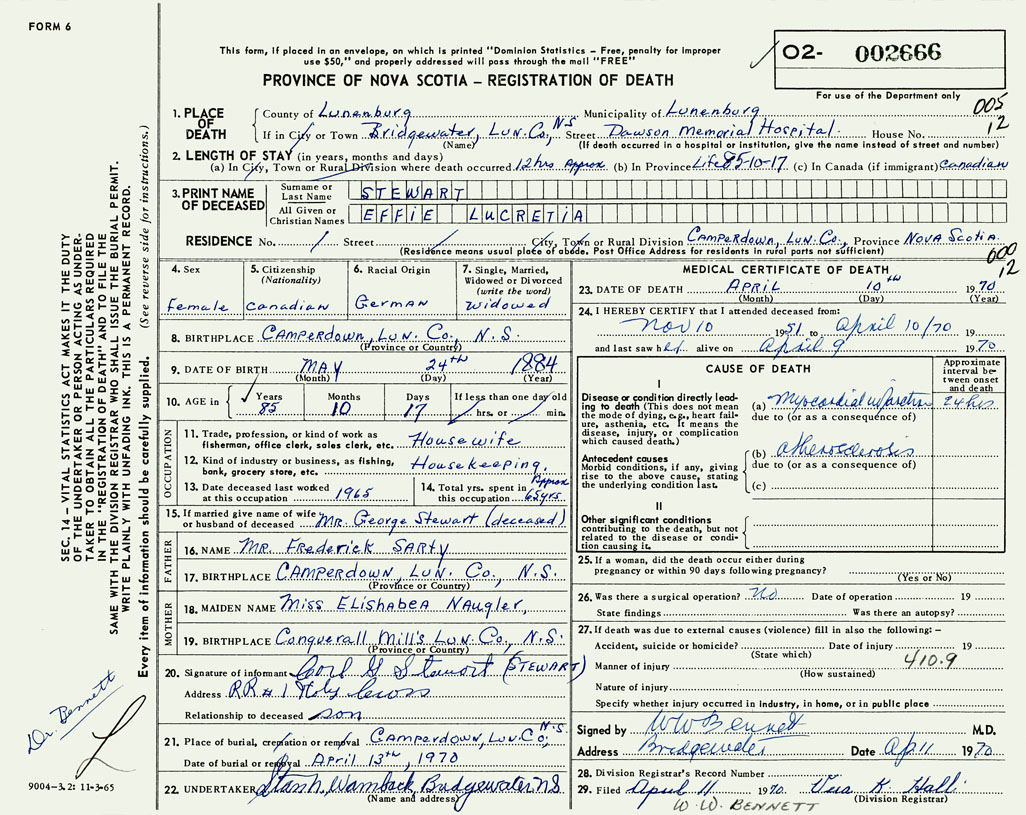 FORM 6
This form, if placed in an envelope, on which is printed "Dominion Statistics – Free, penalty for improper
use $50," and properly addressed will pass through the mail "FREE"
PROVINCE OF NOVA SCOTIA – REGISTRATION OF DEATH
O2- 002666
For use of the Department only
005
12
1. PLACE OF DEATH
County of Lunenburg Municipality of Lunenburg
If in City or Town Bridgewater, Lun. Co., N.S. Street Dawson Memorial Hospital. House No.
(Name) (If death occurred in a hospital or institution, give the name instead of street and number)
2. LENGTH OF STAY (in years, months and days)
(a) In City, Town or Rural Division where death occurred 12 hrs Approx. (b) In Province Life 85-10-17 (c) In Canada (if immigrant) Canadian
3. PRINT NAME OF DECEASED
Surname or Last Name STEWART
All Given or Christian Names EFFIE LUCRETIA
RESIDENCE No. Street City, Town or Rural Division Camperdown, Lun. Co., Province Nova Scotia.
(Residence means usual place of abode. Post Office Address for residents in rural parts not sufficient)
000
12
4. Sex
Female
5. Citizenship
(Nationality)
Canadian
6. Racial Origin
German
7. Single, Married,
Widowed or Divorced
(write the word)
Widowed
8. BIRTHPLACE Camperdown, Lun. Co., N.S.
(Province or Country)
9. DATE OF BIRTH MAY 24th 1884
(Month) (Day) (Year)
10. AGE in Years Months Days If less than one day old
85 10 17 hrs. or min.
OCCUPATION
11. Trade, profession, or kind of work as
fisherman, office clerk, sales clerk, etc. Housewife
12. Kind of industry or business, as fishing,
bank, grocery store, etc. Housekeeping.
13. Date deceased last worked
at this occupation 1965
14. Total yrs. spent in
this occupation Approx 65 yrs.
15. If married give name of wife
or husband of deceased Mr. George Stewart (deceased)
FATHER
16. NAME Mr. Frederick Sarty
17. BIRTHPLACE Camperdown, Lun. Co., N.S.
(Province or Country)
MOTHER
18. MAIDEN NAME Miss Elishabea Naugler,
19. BIRTHPLACE Conquerall Mill's Lun. Co., N.S.
(Province or Country)
20. Signature of informant G Stewart (STEWART)
Address RR # 1
Relationship to deceased son
21. Place of burial, cremation or removal Camperdown, Lun. Co., N.S.
Date of burial or removal April 13th, 1970
22. UNDERTAKER Bridgewater NS
(Name and address)
MEDICAL CERTIFICATE OF DEATH
23. DATE OF DEATH APRIL 10th 1970
(Month) (Day) (Year)
24. I HEREBY CERTIFY that I attended deceased from:
Nov 10 1951 to April 10/70 19
and last saw her alive on April 9 1970
CAUSE OF DEATH
Approximate
interval be-
tween onset
and death
I
Disease or condition directly lead-
ing to death (This does not mean
the mode of dying, e.g., heart fail-
ure, asthenia, etc. It means the
disease, injury, or complication
which caused death.)
(a) Myocardial infarction 24 hrs
due to (or as a consequence of)
Antecedent causes
Morbid conditions, if any, giving
rise to the above cause, stating
the underlying condition last.
(b) atherosclerosis
due to (or as a consequence of)
(c)
II
Other significant conditions
contributing to the death, but not
related to the disease or condi-
tion causing it.
25. If a woman, did the death occur either during
pregnancy or within 90 days following pregnancy?
(Yes or No)
26. Was there a surgical operation? No Date of operation 19
State findings Was there an autopsy?
27. If death was due to external causes (violence) fill in also the following: –
Accident, suicide or homicide? Date of injury 19
(State which)
Manner of injury 410.9
(How sustained)
Nature of injury
Specify whether injury occurred in industry, in home, or in public place
Signed by WW Bennett M.D.
Address Bridgewater Date Ap 11 1970
28. Division Registrar's Record Number
29. Filed April 11 1970. K. Hall
(Division Registrar)
W. W. BENNETT
SEC. 14 – VITAL STATISTICS ACT MAKES IT THE DUTY
OF THE UNDERTAKER OR PERSON ACTING AS UNDER-
TAKER TO OBTAIN ALL THE PARTICULARS REQUIRED
IN THE "REGISTRATION OF DEATH" AND TO FILE THE
SAME WITH THE DIVISION REGISTRAR WHO SHALL ISSUE THE BURIAL PERMIT.
WRITE PLAINLY WITH UNFADING INK. THIS IS A PERMANENT RECORD.
Every item of information should be carefully supplied. (See reverse side for instructions.)
Dr. Bennett
9004-3.2: 11-3-65